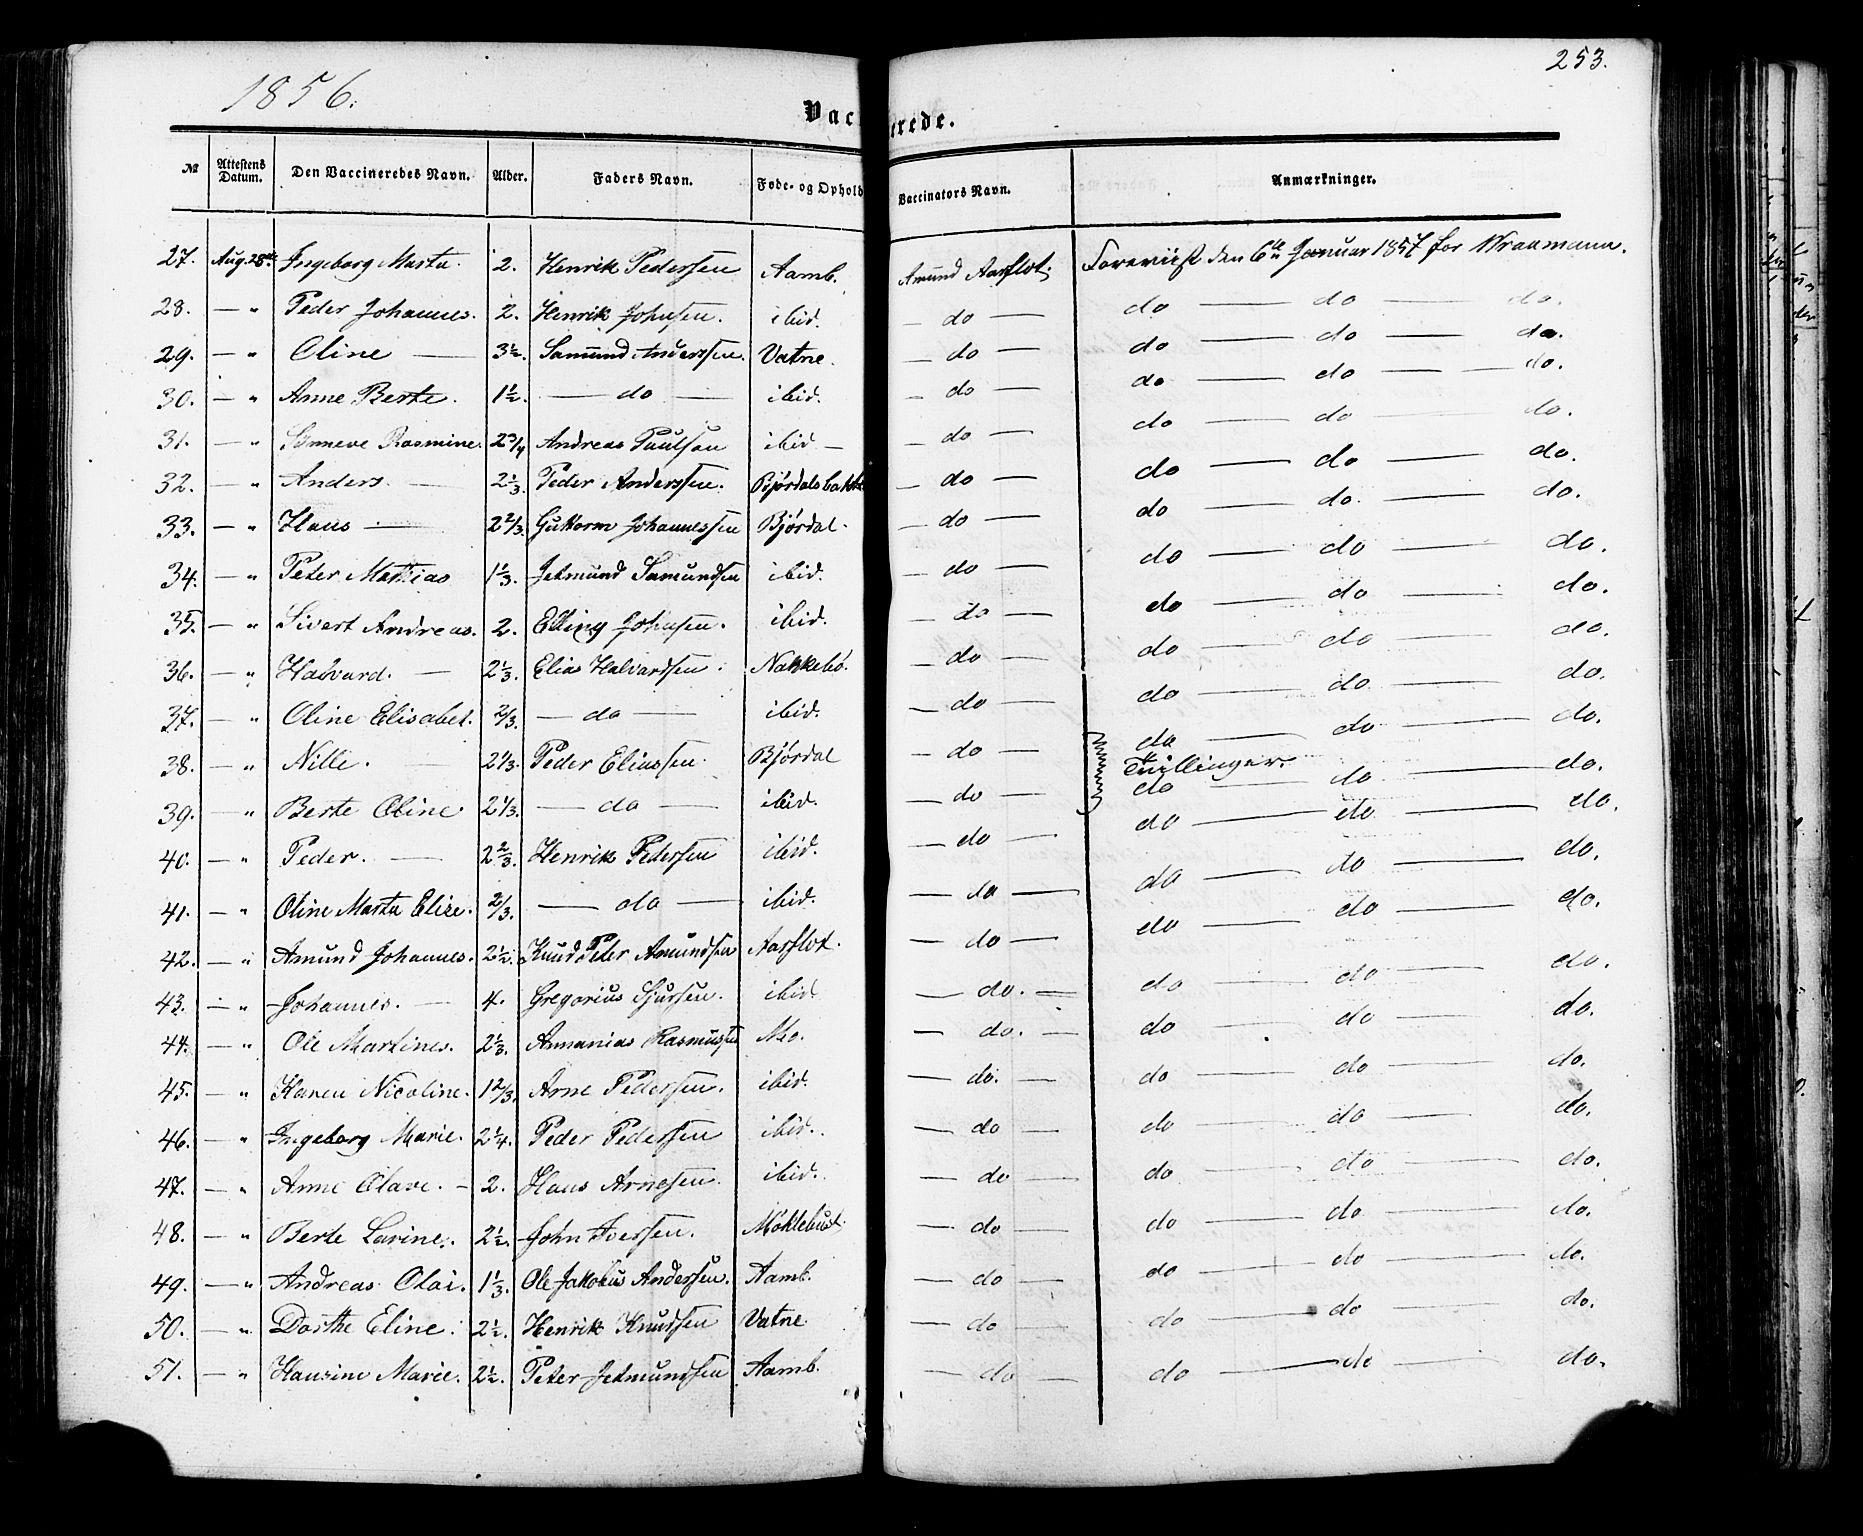 1856.
253.
Vaccinerede.
№ Attestens Datum. Den Vaccineredes Navn. Alder. Faders Navn. Føde- og Ophold Vaccinators Navn. Anmærkninger.
27. Aug. 28de Ingeborg Marta. 2. Henrik Pederssen Aamb. Amund Aarflot. Foreviist den 6te Januar 1857 for
28. — " Peder Johannes. 2. Henrik Johnsen. ibid. — do — do — do — do.
29. — " Oline — 3½. Samund Anderssen. Vatne. — do — do — do — do.
30. — " Anne Berte. 1½. — do — ibid. — do — do — do — do.
31. — " Synneve Rasmine. 2 3/4 Andreas Paulsen ibid — — do — do — do — do.
32. — " Anders. — 2⅓. Peder Anderssen. Bjørdalsbakke — do — do — do — do.
33. — " Hans — 2 2/3. Guttorm Johannessen Bjørdal. — do — do — do — do.
34. — " Peter Mathias 1⅓. Jetmund Samundsen ibid. — do — do — do — do.
35. — " Sivert Andreas. 2. Elling Johnsen. ibid. — do — do — do — do.
36. — " Halvard. — 2⅓. Elias Halvardsen. Nakkebø. — do — do — do — do.
37. — " Oline Elisabet. 2/3. — do — ibid. — do — do — do — do.
38. — " Nille. 2 1/3. Peder Eliassen. Bjørdal — do — do — do — do.
Tvillinger.
39. — " Berte Oline 2 1/3. — do — ibid. — do — do — do — do.
40. — " Peder. — 2⅔. Henrik Pedersen ibid. — do — do — do — do.
41. — " Oline Marta Elise. 2/3. — do — ibid. — do — do — do — do.
42. — " Amund Johannes. 2½. Knud Peter Amundsen Aarflot. — do — do — do — do.
43. — " Johannes. — 4. Gregorius Sjursen. ibid. — do. — do — do — do.
44. — " Ole Martines. 2⅓. Annanias Rasmussen Mo. — do. — do — do — do.
45. — " Karen Nicoline. 1 2/3. Arne Pedersen. ibid. — do. — do — do — do.
46. — " Ingeborg Marie. 2¼. Peder Pedersen ibid. — do — do — do — do.
47. — " Anne Olave. — 2. Hans Arnesen. ibid. — do — do — do — do.
48. — " Berte Larine. 2½. John Iversen. Møklebust. — do — do — do — do.
49. — " Andreas Olai. 1⅓. Ole Jakobus Andersen. Aamb. — do — do — do — do.
50. — " Dorthe Eline. 2½. Henrik Knudsen Vatne — do — do — do — do.
51. — " Hansine Marie. 2½. Peter Jetmundsen Aamb. — do — do — do — do.